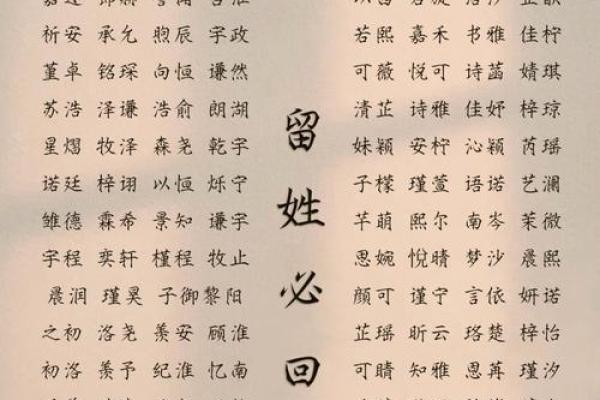 祈安 承允 煦辰 宇政
堇卓 铭琛 向恒 谦然
苏浩 泽谦 浩俞 朗湖
星熠 牧泽 森尧 乾宇
诺廷 梓诩 以恒 烁宁
雏德 霖希 景知 谦宇
宇程 奕轩 槿程 牧止
晨润 瑾昊 子御 黎阳
之初 洛尧 羡安 顾淮
初洛 羡予 纪淮 忆南
留
姓
必
回
若熙 嘉禾 书雅 佳柠
可薇 悦可 诗菡 婧琪
清芷 诗雅 佳妤 梓琼
妹颖 安柠 沁颖 芮瑶
子檬 瑾萱 语诺 艺澜
芊萌 熙尔 南岑 茉微
思婉 悦晴 梦沙 晨熙
颜可 谨宁 言依 妍诺
芷瑶 昕云 珞楚 梓怡
可晴 知雅 恩苒 瑾汐